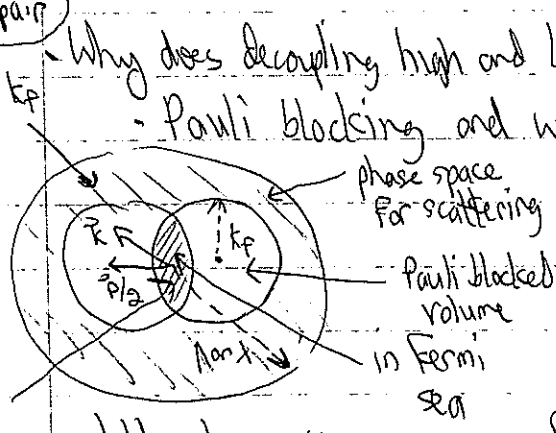 pair
· Why does decoupling high and l
k_F
· Pauli blocking and w
phase space
for scattering
k
k_F
P/2
Pauli blocked
volume
Λ or λ
in Fermi
sea